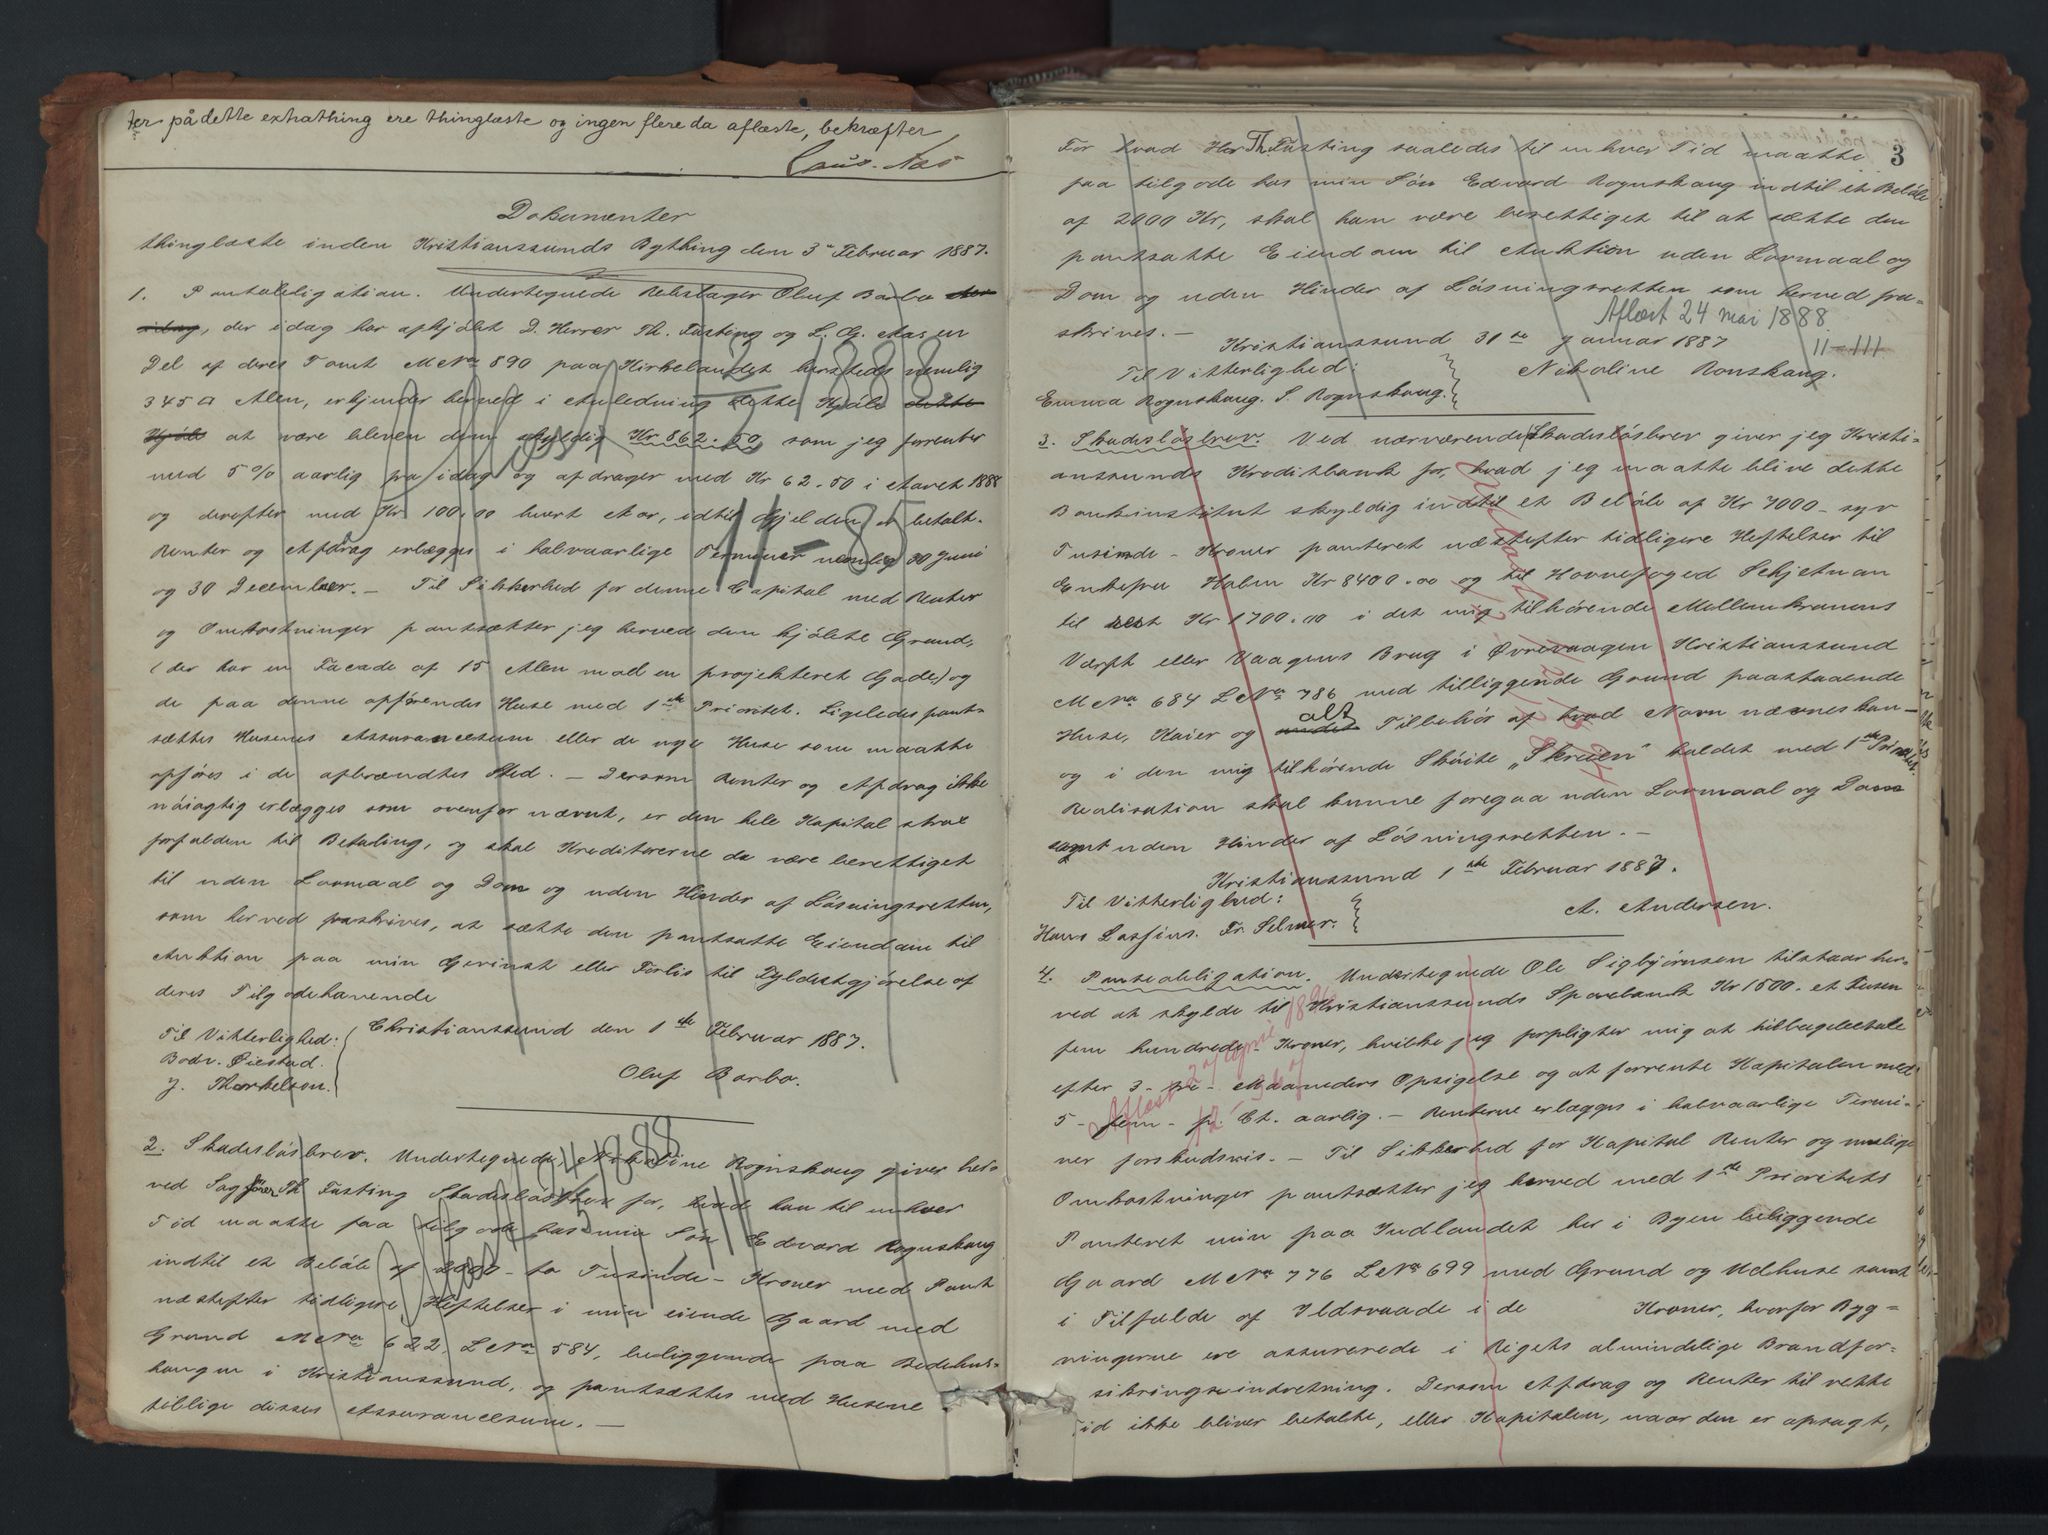 ter på dette extrathing ere thinglæste og ingen flere da aflæste, bekræfter
Dokumenter
thinglæste inden Kristianssunds Bything den 3 Februar 1887.
1. Pantobligation. Undertegnede Rebslager Oluf Barbo
, der idag har afkjöbt D. Herrer Th. Fasting og L. G. Aas en
Del af deres Tomt M No 890 paa Kirkelandet hersteds nemlig
345 □ Alen, erkjender herved i Anledning dette Kjöb dette
Kjöb at være bleven dem skyldig Kr 862.50 som jeg forrenter
med 5 % aarlig fra idag og afdrager med Kr 62.50 i Aaret 1888
og derefter med Kr 100.00 hvert Aar, indtil Gjelden er betalt.
Renter og Afdrag erlægges i halvaarlige Terminer nemlig 30 Juni
og 30 December. – Til Sikkerhed for denne Capital med Renter
og Omkostninger pantsætter jeg herved den kjöbte Grund,
(der har en Facade af 15 Alen mod en projekteret Gade,) og
de paa denne opförendes Huse med 1ste Prioritet. Ligeledes pant-
sættes Husenes Assurancesum eller de nye Huse som maatte
opföres i de afbrændtes Sted. – Dersom Renter og Afdrag ikke
nöiagtig erlægges som ovenfor nævnt, er den hele Kapital strax
forfalden til Betaling, og skal Kreditorerne da være berettiget
til uden Lovmaal og Dom og uden Hinder af Lösningsretten,
som herved fraskrives, at sætte den pantsatte Eiendom til
Auktion paa min Gevinst eller Forlis til Fyldestgjörelse af
deres Tilgodehavende
Christianssund den 1ste Februar 1887.
Til Vitterlighed:
Bodv. Øiestad.
J. Thorkelson.
Oluf Barbo.
2. Skadeslösbrev. Undertegnede Nikoline Rognskaug giver her-
ved Sagförer Th Fasting Skadeslösbrev for, hvad han til enhver
Tid maatte faa tilgode hos min Sön Edvard Rognskaug
indtil et Beløb af 2000 – to Tusinde – Kroner med Pant
næstefter tidligere Heftelser i min eiende Gaard med
Grund M No 622 L No 584, beliggende paa Bedehus-
haugen i Kristianssund, og pantsættes med Husene
tillige disses Assurancesum. –
3
For hvad Hr Th. Fasting saaledes til enhver Tid maatte
faa tilgode hos min Sön Edvard Rognskaug indtil et Belöb
af 2000 Kr, skal han være berettiget til at sætte den
pantsatte Eiendom til Auktion uden Lovmaal og
Dom og uden Hinder af Lösningsretten som herved fra-
skrives. –
Aflæst 24 mai 1888
II–III
Kristianssund 31te Januar 1887
Til Vitterlighed:
Nikoline Ronskaug.
Emma Rognskaug. S. Rognskaug.
3. Skadeslösbrev. Ved nærværende Skadeslösbrev giver jeg Kristi-
anssunds Kreditbank for, hvad jeg maatte blive dette
Bankinstitut skyldig indtil et Belöb af Kr 7000 – syv
Tusinde – Kroner panteret næstefter tidligere Heftelser til
Enkefru Holm Kr 8400.00 og til Havnefoged Schjetnan
til rest Kr 1700.00 i det mig tilhörende Mellemkranens
Værft eller Vaagens Brug i Øvrevaagen Kristianssund
M No 684 L No 786 med tilliggende Grund paastaaende
Huse, Kaier og alt Tilbehör af hvad Navn nævnes kan –
og i den mig tilhörende Sköite „Skreien" kaldet med 1ste Prioritet.
Realisation skal kunne foregaa uden Lovmaal og Dom
samt uden Hinder af Lösningsretten. –
Kristianssund 1ste Februar 1887.
Til Vitterlighed:
A. Andersen.
Hans Lossius. Fr. Selmer.
4. Panteobligation. Undertegnede Ole Sigbjörnsen tilstaar her-
ved at skylde til Kristianssunds Sparebank Kr 1500. et Tusen
fem hundrede – Kroner, hvilke jeg forpligter mig at tilbagebetale
efter 3 – tre – Maaneders Opsigelse og at forrente Kapitalen med
5 – fem – p. Ct. aarlig. – Renterne erlægges i halvaarlige Termi-
ner forskudsvis. – Til Sikkerhed for Kapital Renter og mulige
Omkostninger pantsætter jeg herved med 1ste Prioritets
Panteret min paa Indlandet her i Byen beliggende
Gaard M No 776 L No 699 med Grund og Udhuse samt
i Tilfælde af Ildsvaade i de Kroner, hvorfor Byg-
ningerne ere assurerede i Rigets almindelige Brandfor-
sikringsindretning. Dersom Afdrag og Renter til rette
Tid ikke bliver betalte, eller Kapitalen, naar den er opsagt,